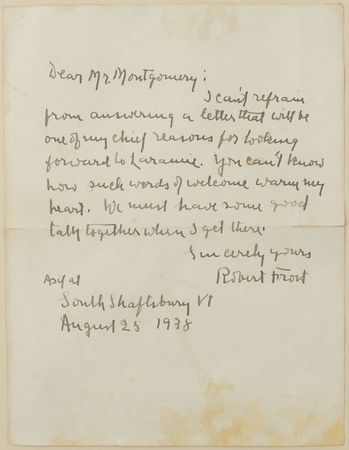 Dear Mr. Montgomery:
I can't refrain
from answering a letter that will be
one of my chief reasons for looking
forward to Laramie. You can't know
how such words of welcome warm my
heart. We must have some good
talk together when I get there.
Sincerely yours
Robert Frost
As if at
South Shaftsbury Vt
August 25 1938